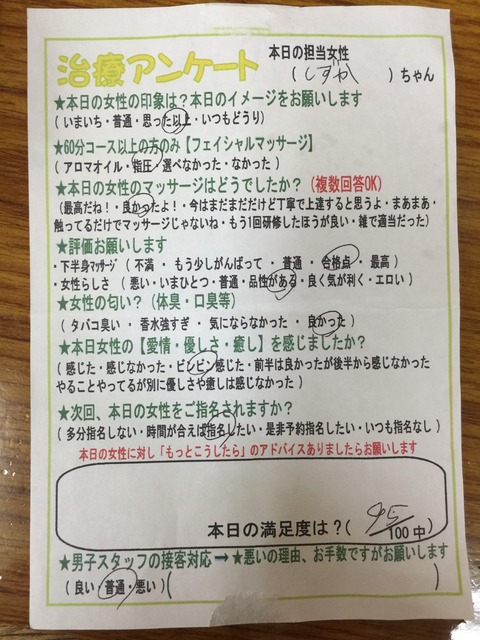 治療アンケート
本日の担当女性
(しずか)ちゃん
★本日の女性の印象は?本日のイメージをお願いします
(いまいち・普通・思った以上・いつもどうり)
★60分コース以上の方のみ【フェイシャルマッサージ】
(アロマオイル・指圧・選べなかった・なかった)
★本日の女性のマッサージはどうでしたか?(複数回答OK)
(最高だね!・良かったよ!・今はまだまだだけど丁寧で上達すると思うよ・まあまあ・
触ってるだけでマッサージじゃないね・もう1回研修したほうが良い・雑で適当だった)
★評価お願いします
・下半身マッサージ(不満・もう少しがんばって・普通・合格点・最高)
・女性らしさ(悪い・いまひとつ・普通・品性がある・良く気が利く・エロい)
★女性の匂い?(体臭・口臭等)
(タバコ臭い・香水強すぎ・気にならなかった・良かった)
★本日女性の【愛情・優しさ・癒し】を感じましたか?
(感じた・感じなかった・ビンビン感じた・前半は良かったが後半から感じなかった
やることやってるが別に優しさや癒しは感じなかった)
★次回、本日の女性をご指名されますか?
(多分指名しない・時間が合えば指名したい・是非予約指名したい・いつも指名なし)
本日の女性に対し「もっとこうしたら」のアドバイスありましたらお願いします
本日の満足度は?(95/100中)
★男子スタッフの接客対応→★悪いの理由、お手数ですがお願いします
(良い・普通・悪い)( )